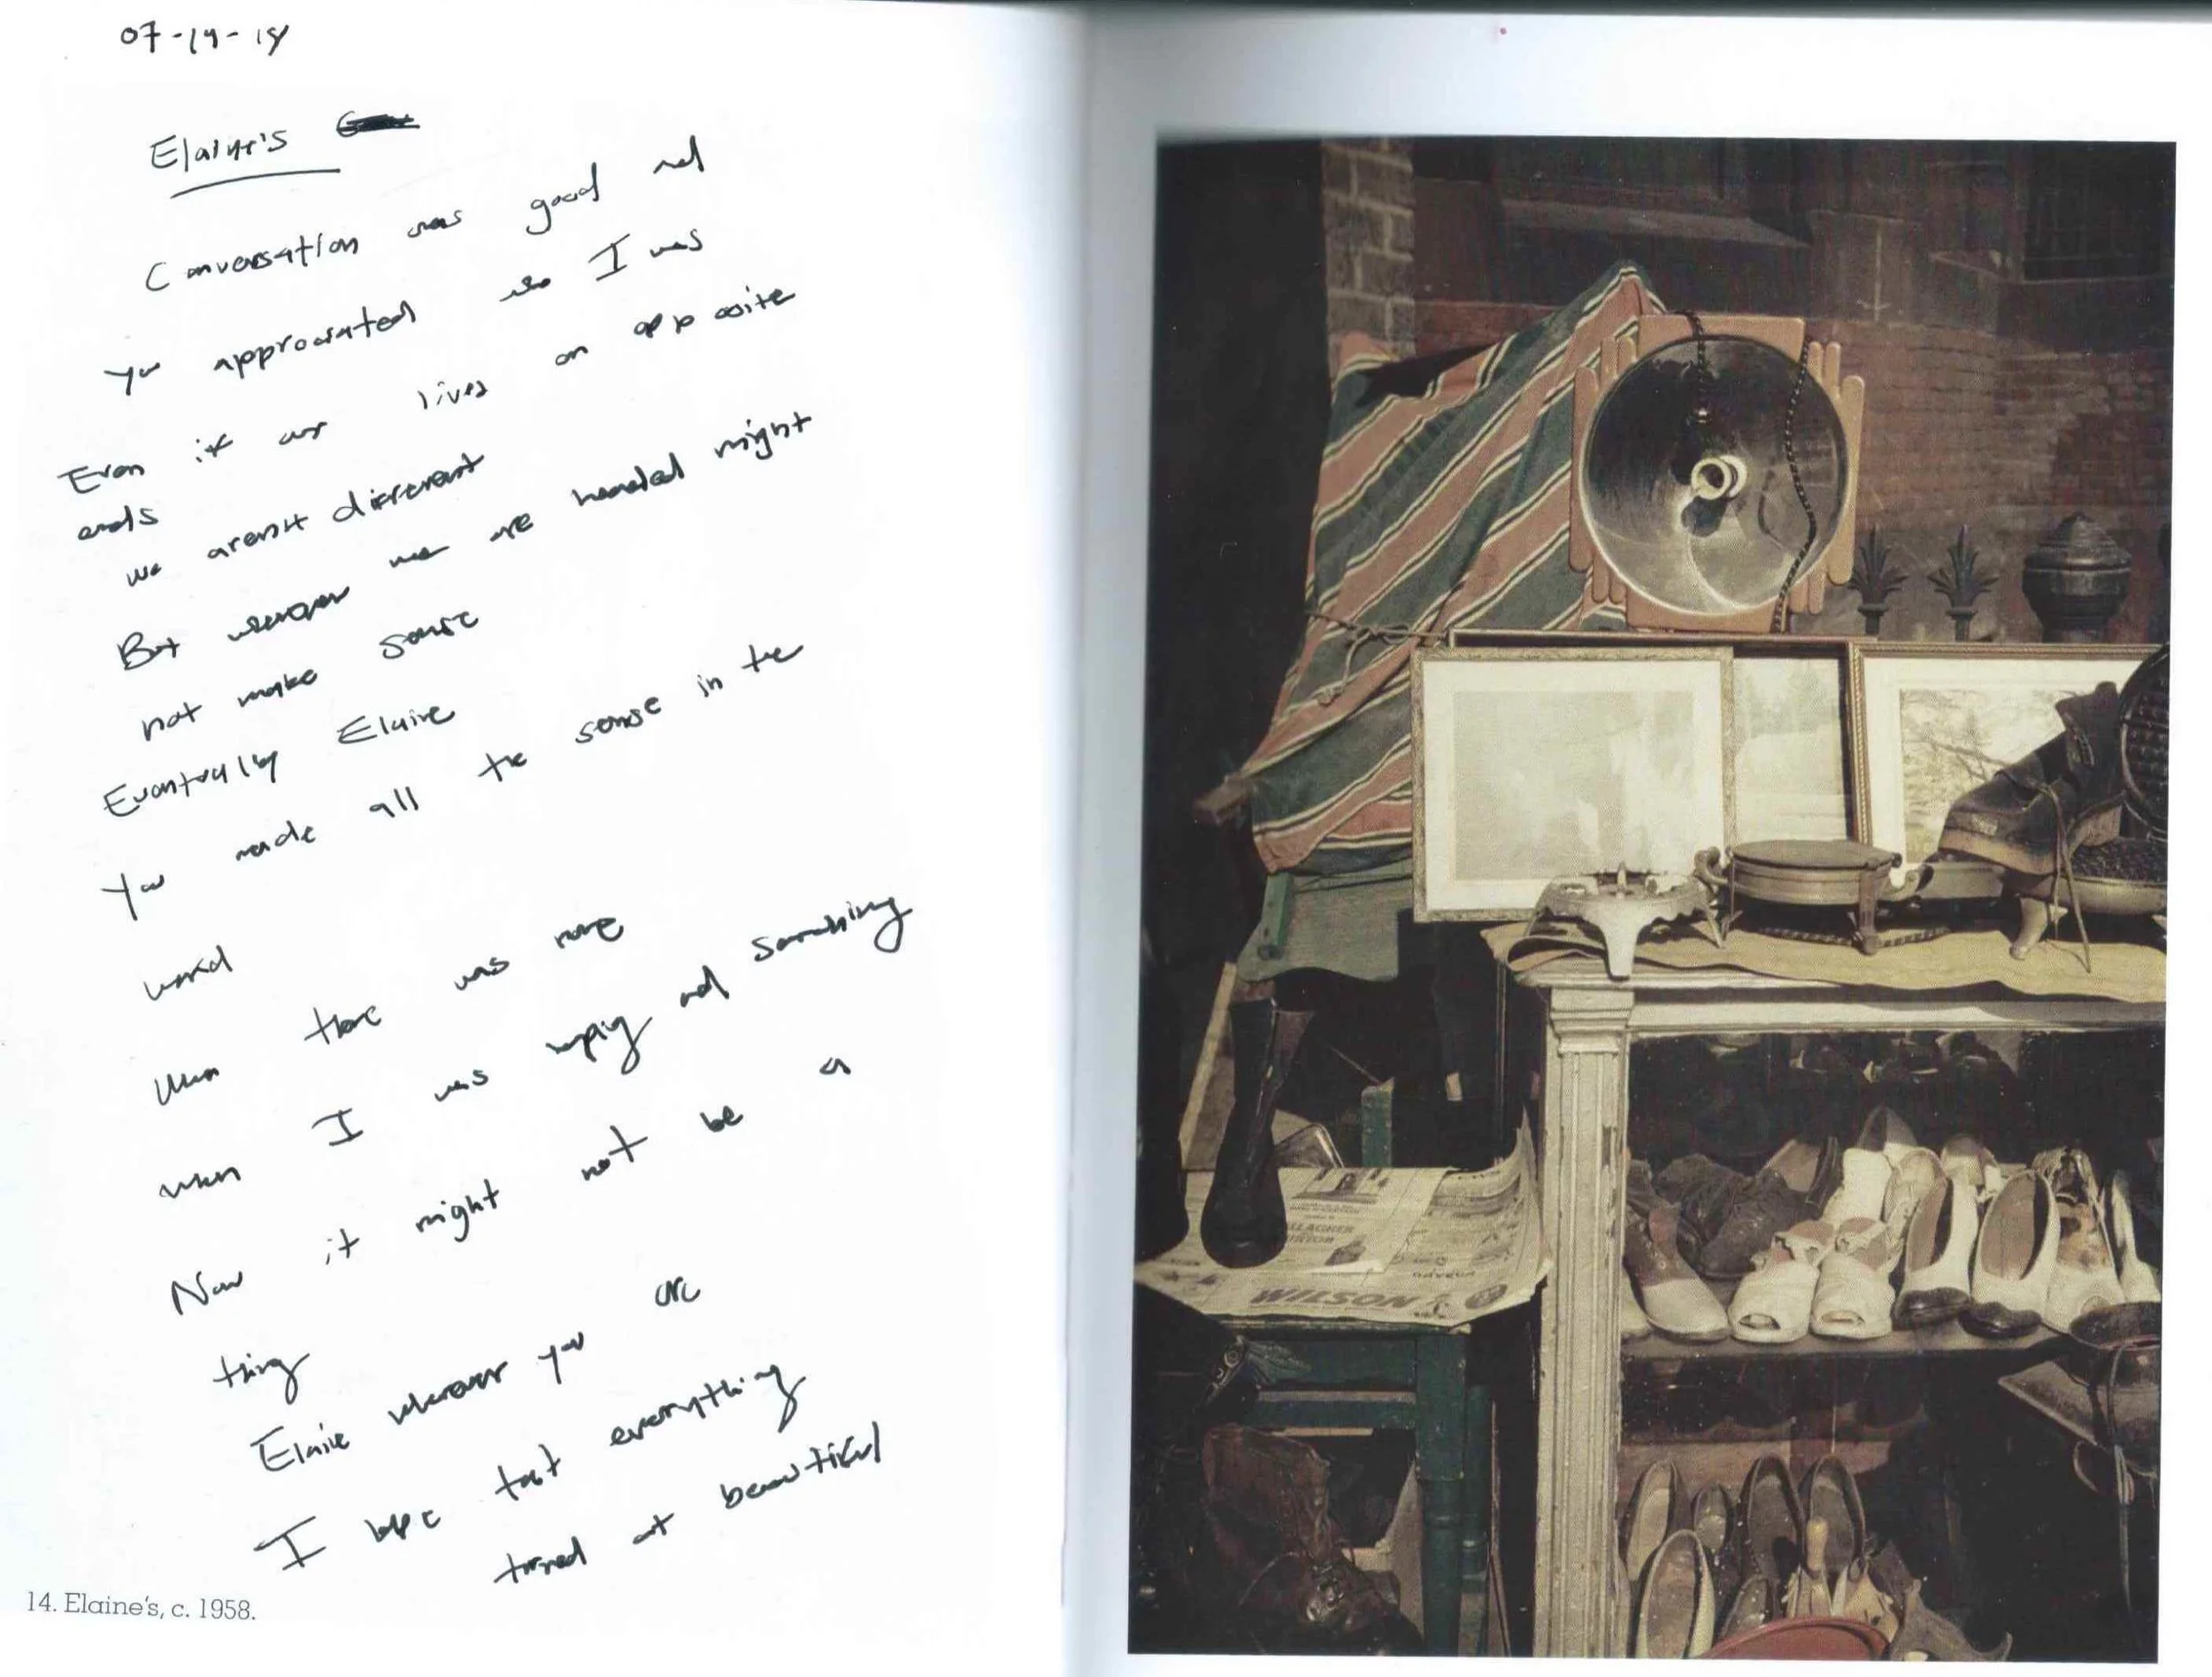 07-19-18
Elaine's
Conversation was good and
You appreciated who I was
Even if our lives on opposite
ends
We aren't different
But wherever we are headed might
not make sense
Eventually Elaine
You made all the sense in the
world
When there was none
When I was and something
Now it might not be a
thing
Elaine wherever you are
I hope that everything
turned out beautiful
14. Elaine's, c. 1958.
WILSON